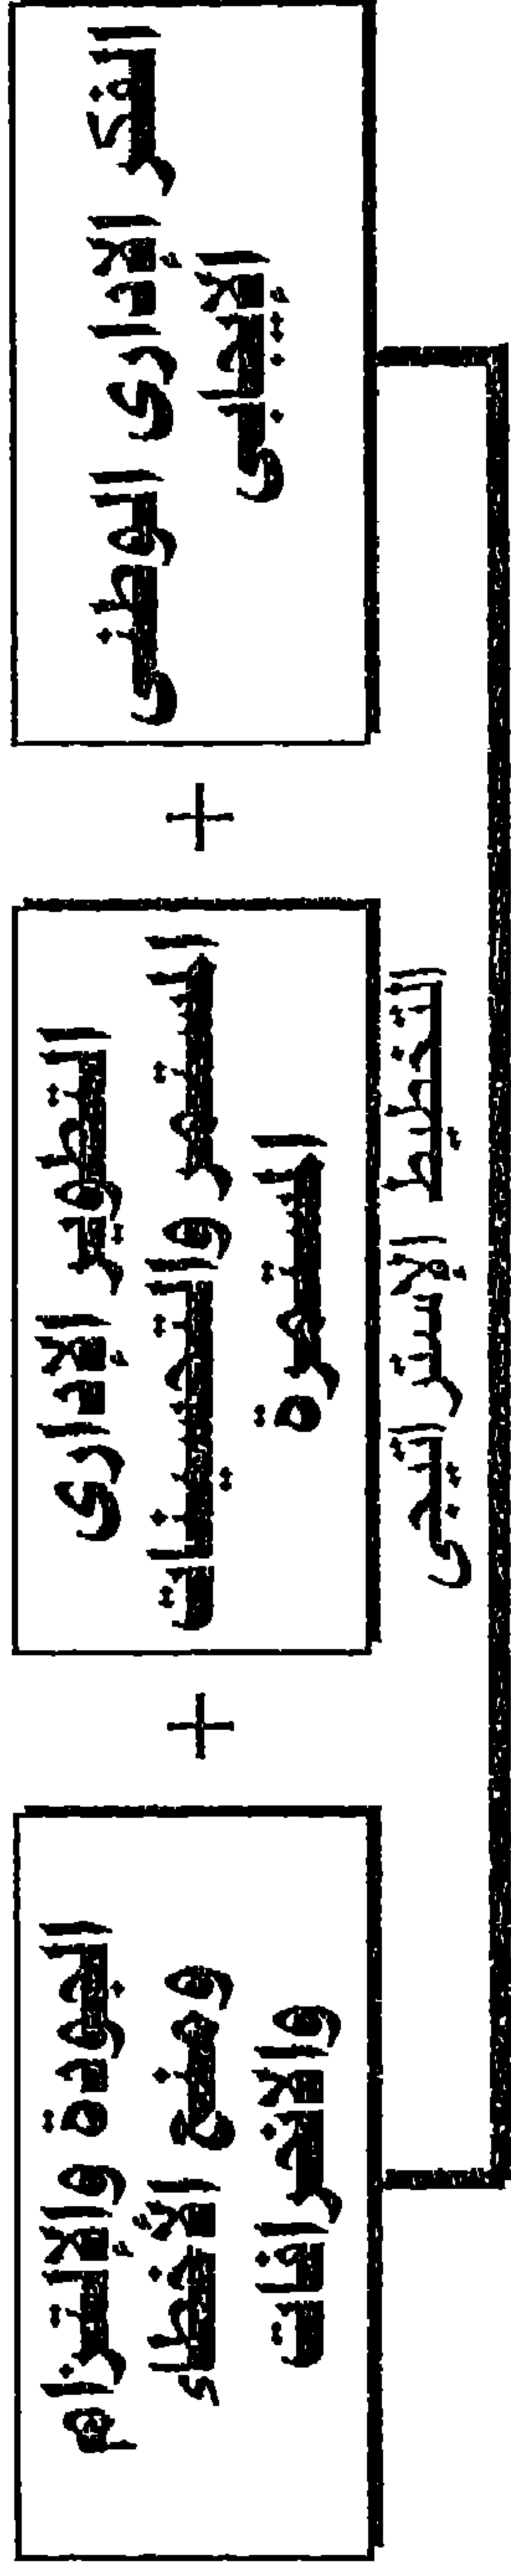 الفكر الإدارى الوطنى
الإيجابى
+
التطوير الإدارى
المستمر والتحسينات
المستمرة
+
الجودة والإلتزام
ومنع الأخطاء
والانحرافات
التخطيط الإستراتيجى